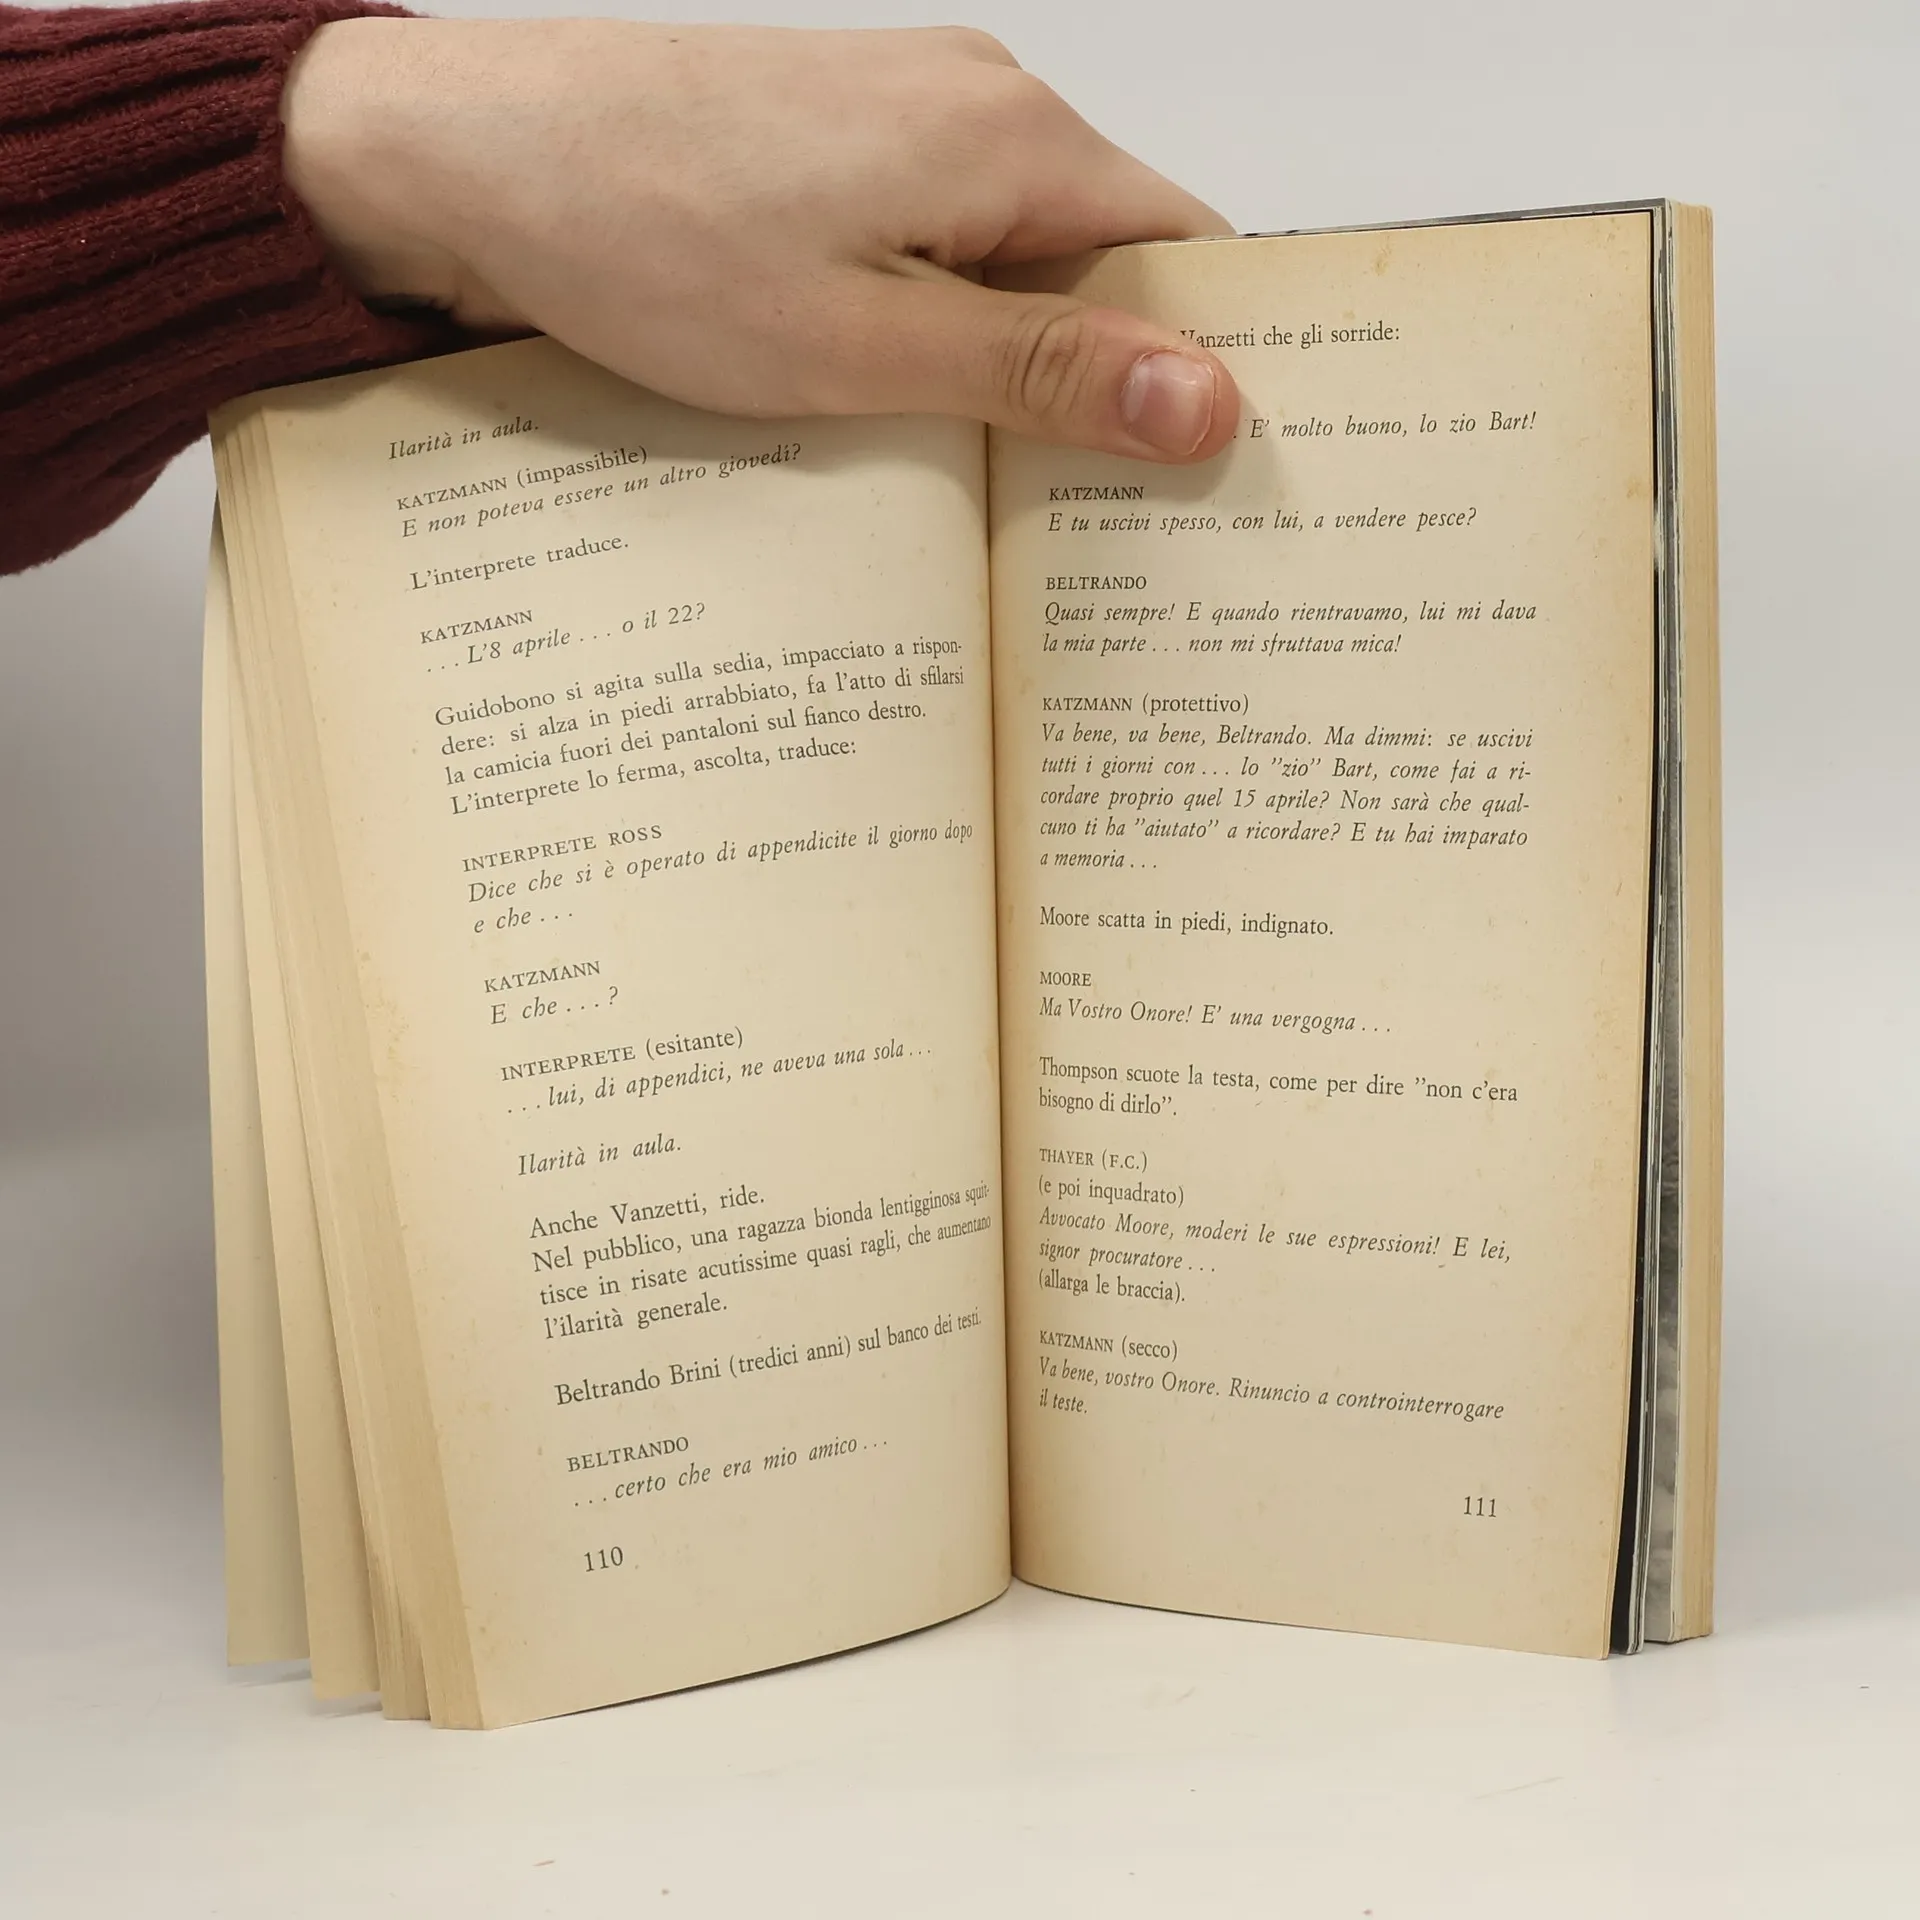 Ilarità in aula.
KATZMANN (impassibile)
E non poteva essere un altro giovedí?
L'interprete traduce.
KATZMANN
. . . L'8 aprile . . . o il 22?
Guidobono si agita sulla sedia, impacciato a rispon-
dere: si alza in piedi arrabbiato, fa l'atto di sfilarsi
la camicia fuori dei pantaloni sul fianco destro.
L'interprete lo ferma, ascolta, traduce:
INTERPRETE ROSS
Dice che si è operato di appendicite il giorno dopo
e che . . .
KATZMANN
E che . . . ?
INTERPRETE (esitante)
. . . lui, di appendici, ne aveva una sola . . .
Ilarità in aula.
Anche Vanzetti, ride.
Nel pubblico, una ragazza bionda lentigginosa squit-
tisce in risate acutissime quasi ragli, che aumentano
l'ilarità generale.
Beltrando Brini (tredici anni) sul banco dei testi.
BELTRANDO
. . . certo che era mio amico . . .
110
Vanzetti che gli sorride:
. E' molto buono, lo zio Bart!
KATZMANN
E tu uscivi spesso, con lui, a vendere pesce?
BELTRANDO
Quasi sempre! E quando rientravamo, lui mi dava
la mia parte . . . non mi sfruttava mica!
KATZMANN (protettivo)
Va bene, va bene, Beltrando. Ma dimmi: se uscivi
tutti i giorni con . . . lo "zio" Bart, come fai a ri-
cordare proprio quel 15 aprile? Non sarà che qual-
cuno ti ha "aiutato" a ricordare? E tu hai imparato
a memoria . . .
Moore scatta in piedi, indignato.
MOORE
Ma Vostro Onore! E' una vergogna . . .
Thompson scuote la testa, come per dire "non c'era
bisogno di dirlo".
THAYER (F.C.)
(e poi inquadrato)
Avvocato Moore, moderi le sue espressioni! E lei,
signor procuratore . . .
(allarga le braccia).
KATZMANN (secco)
Va bene, vostro Onore. Rinuncio a controinterrogare
il teste.
111